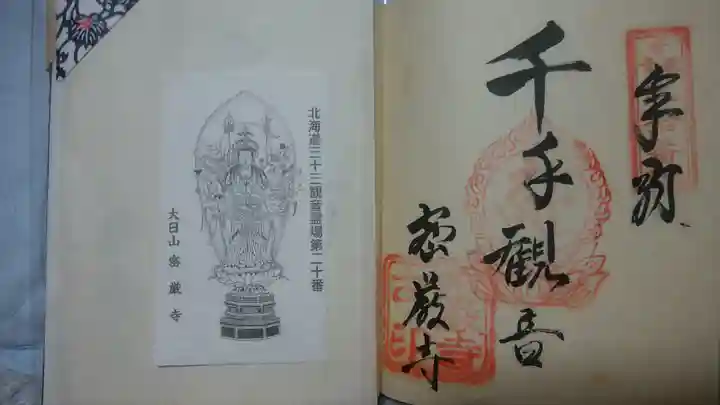 北海道三十三観音霊場第二十番
大日山 密厳寺
奉拝
千手観音
密厳寺